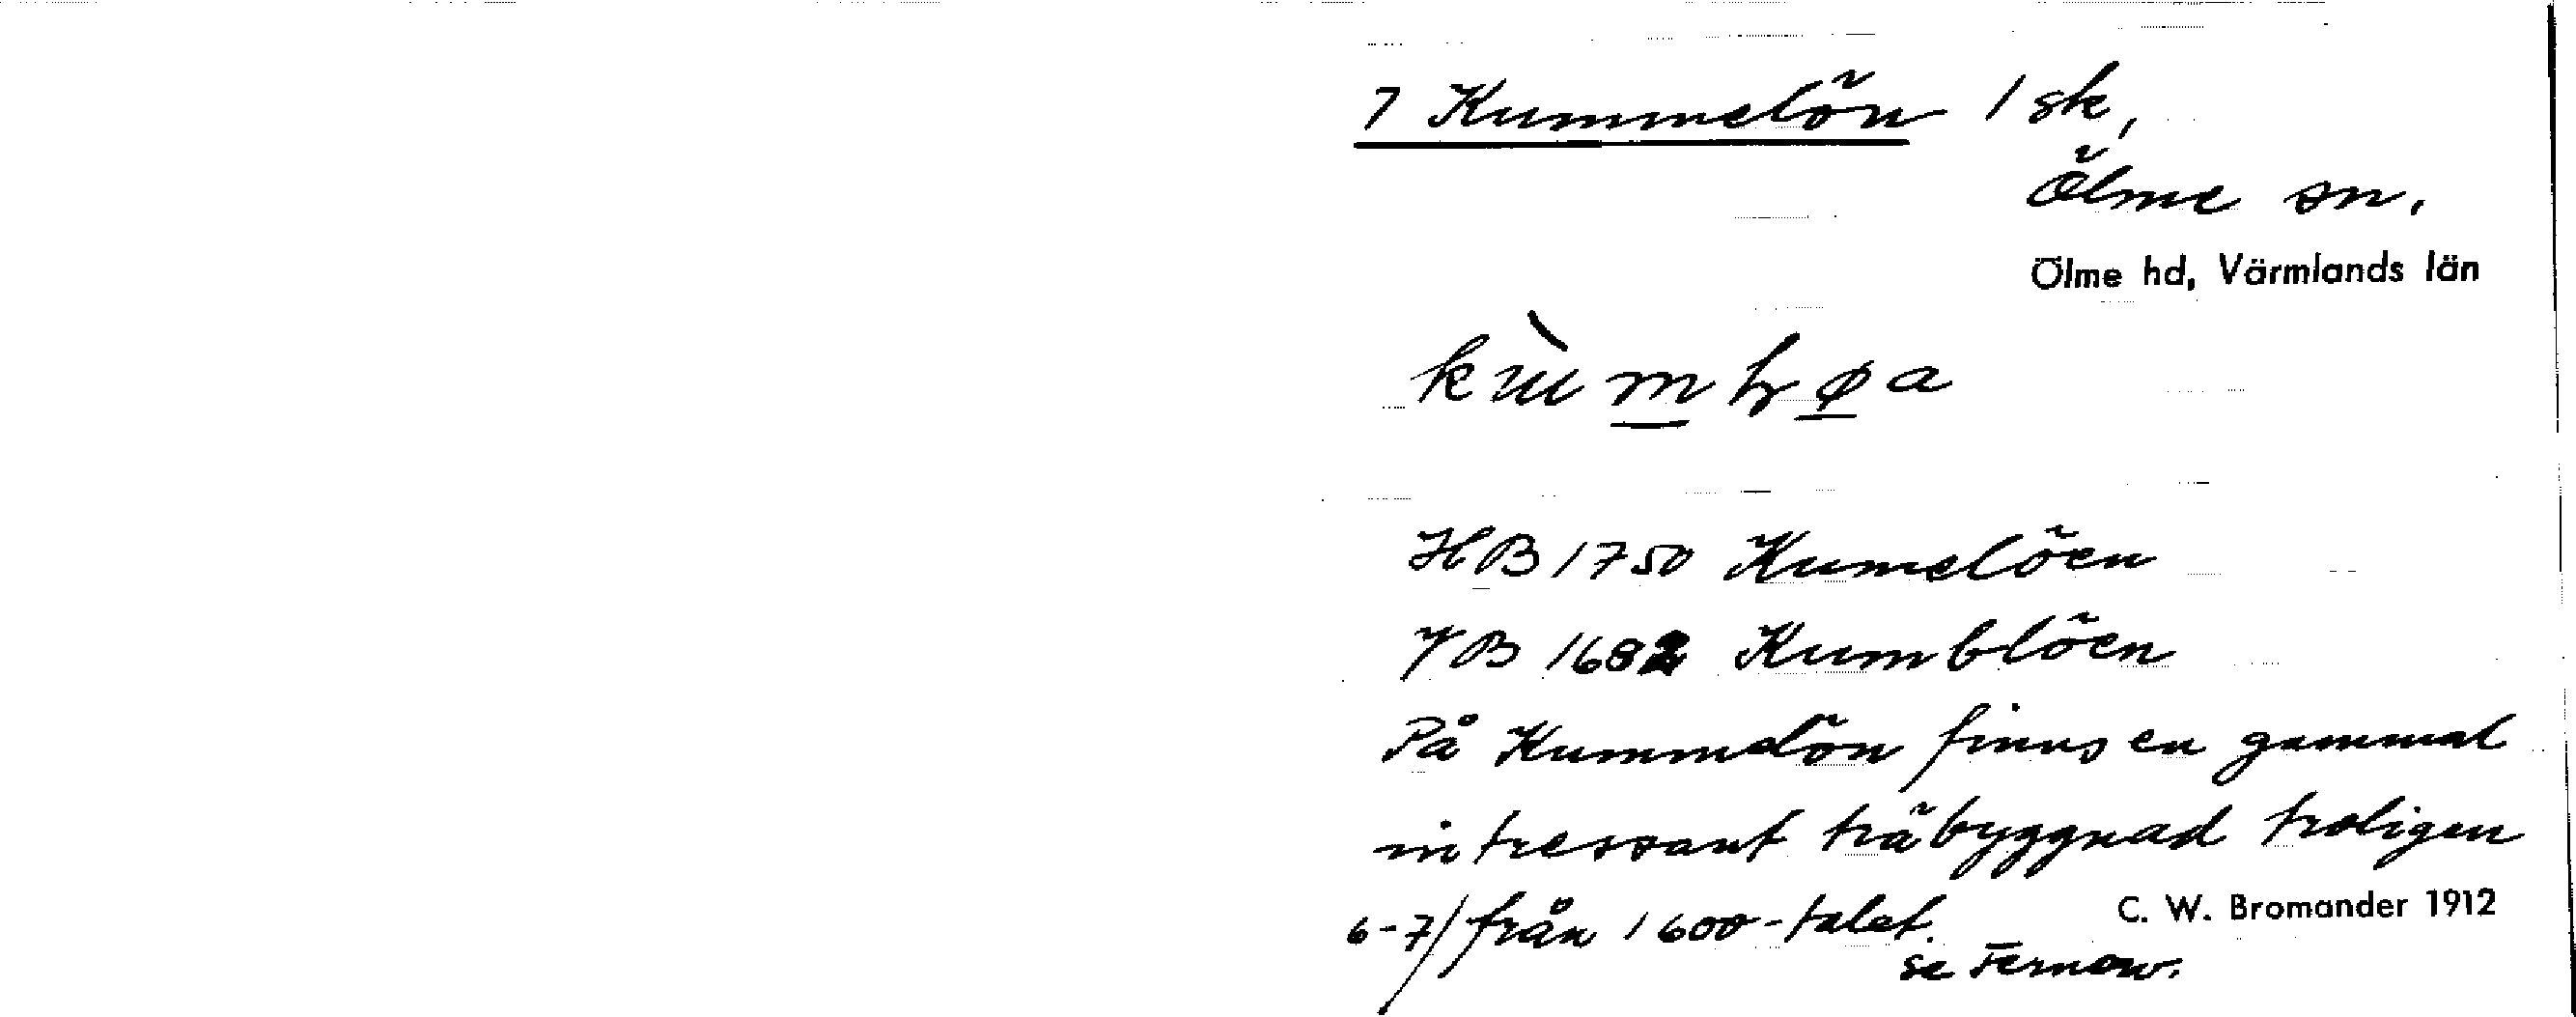 7 Kummelön 1 sk,
Ölme sn.
Ölme hd, Värmlands län
HB 1750 Kumelöen
JB 1682 Kumblöen
På Kummelön finns en gammal
intressant träbyggnad troligen
6-7/ från 1600-talet.
C. W. Bromander 1912
se Fernow.